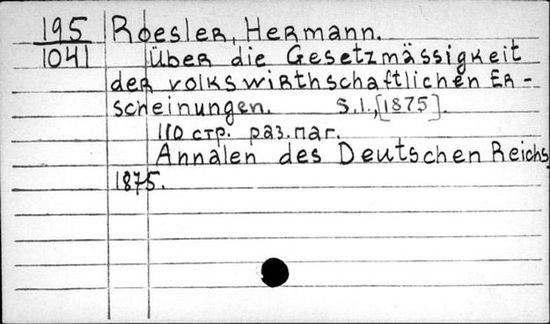 195 Roesler, Hermann.
1041 Über die Gesetzmässigkeit
der volkswirthschaftlichen Er-
scheinungen. S.l., [1875].
110 стр. раз. паг.
Annalen des Deutschen Reichs,
1875.